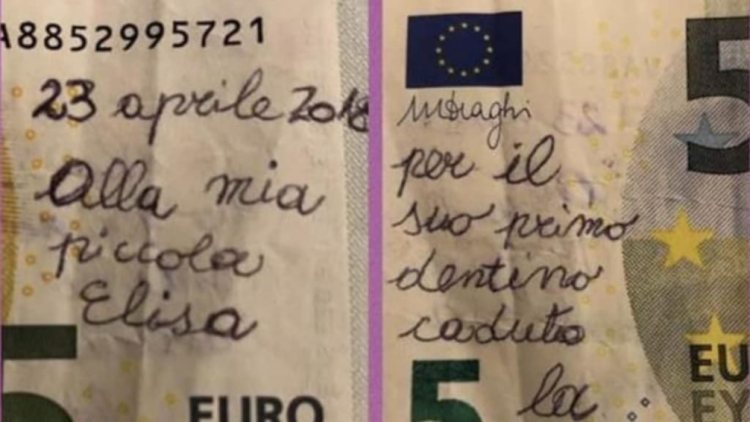 A8852995721
23 aprile 2018
Alla mia
piccola
Elisa
EURO
MDraghi
per il
suo primo
dentino
caduto
la
5
5
EU
EY